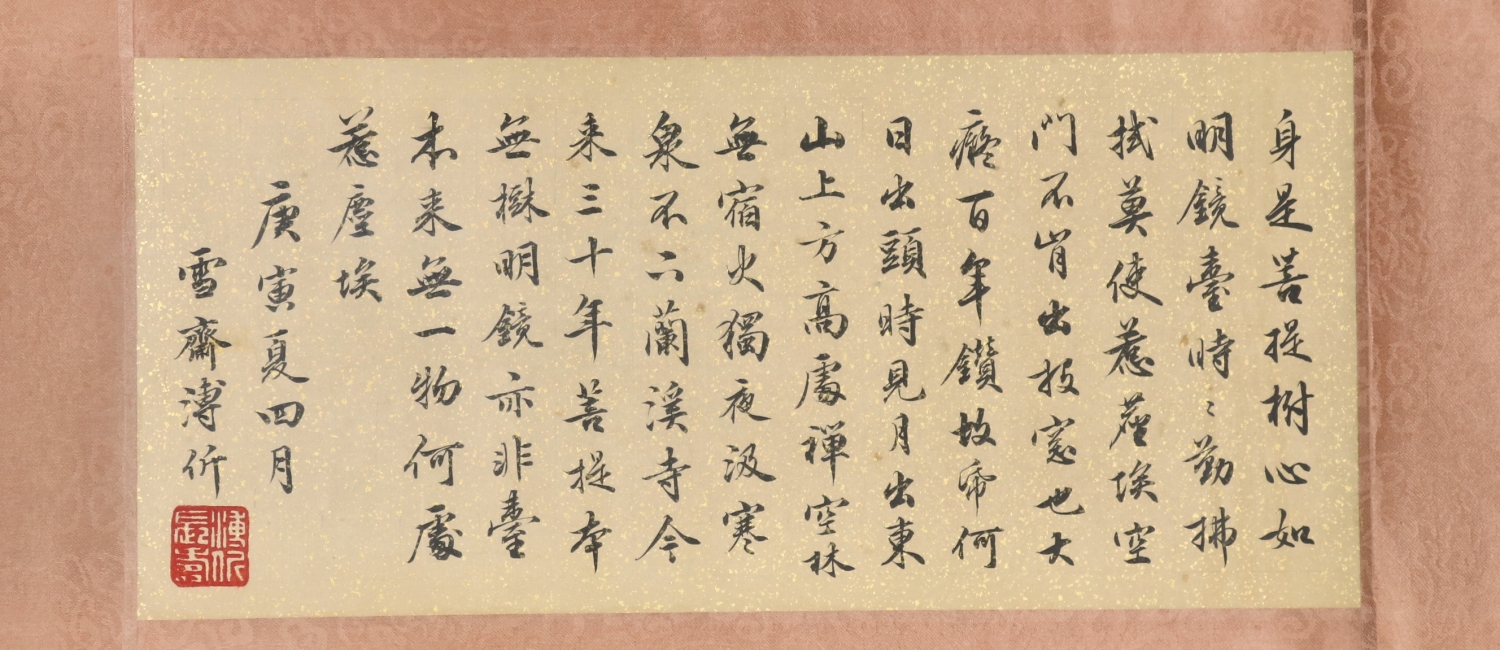 身是菩提樹心如
明鏡臺時〻勤拂
拭莫使惹塵埃空
門不肯出投窓也大
癡百年鑽故帋何
日出頭時見月出東
山上方高處禪空林
無宿火獨夜汲寒
泉不二蘭溪寺今
来三十年菩提本
無樹明鏡亦非臺
本来無一物何處
惹塵埃
庚寅夏四月
雪齋溥伒
溥伒
長壽